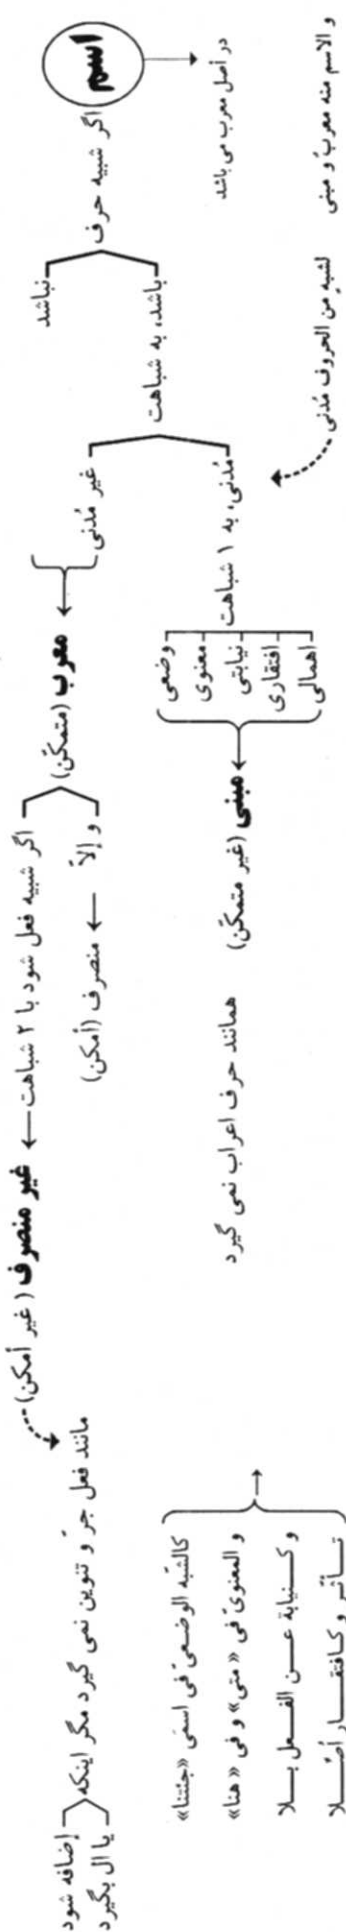 و الاسم منه معربٌ و مبنی
لشبهٍ من الحروف مُدنی
اسم
در أصل معرب می باشد
اگر شبیه حرف
نباشد
باشد، به شباهت
غیر مُدنی
مُدنی، به ۱ شباهت
وضعی
معنوی
نیابتی
افتقاری
اهمالی
معرب (متمکّن)
مبنی (غیر متمکّن)
همانند حرف اعراب نمی گیرد
اگر شبیه فعل شود با ۲ شباهت
غیر منصرف (غیر أمکن)
و إلاّ
منصرف (أمکن)
مانند فعل جرّ و تنوین نمی گیرد مگر اینکه
إضافه شود
یا ال بگیرد
کالشّبه الوضعیّ فی اسمَی «جئتنا»
و المعنویّ فی «متی» و فی «هنا»
و کـنیابة عـن الفـعل بـلا
تـأثّر و کـافتقـار أصّـلا